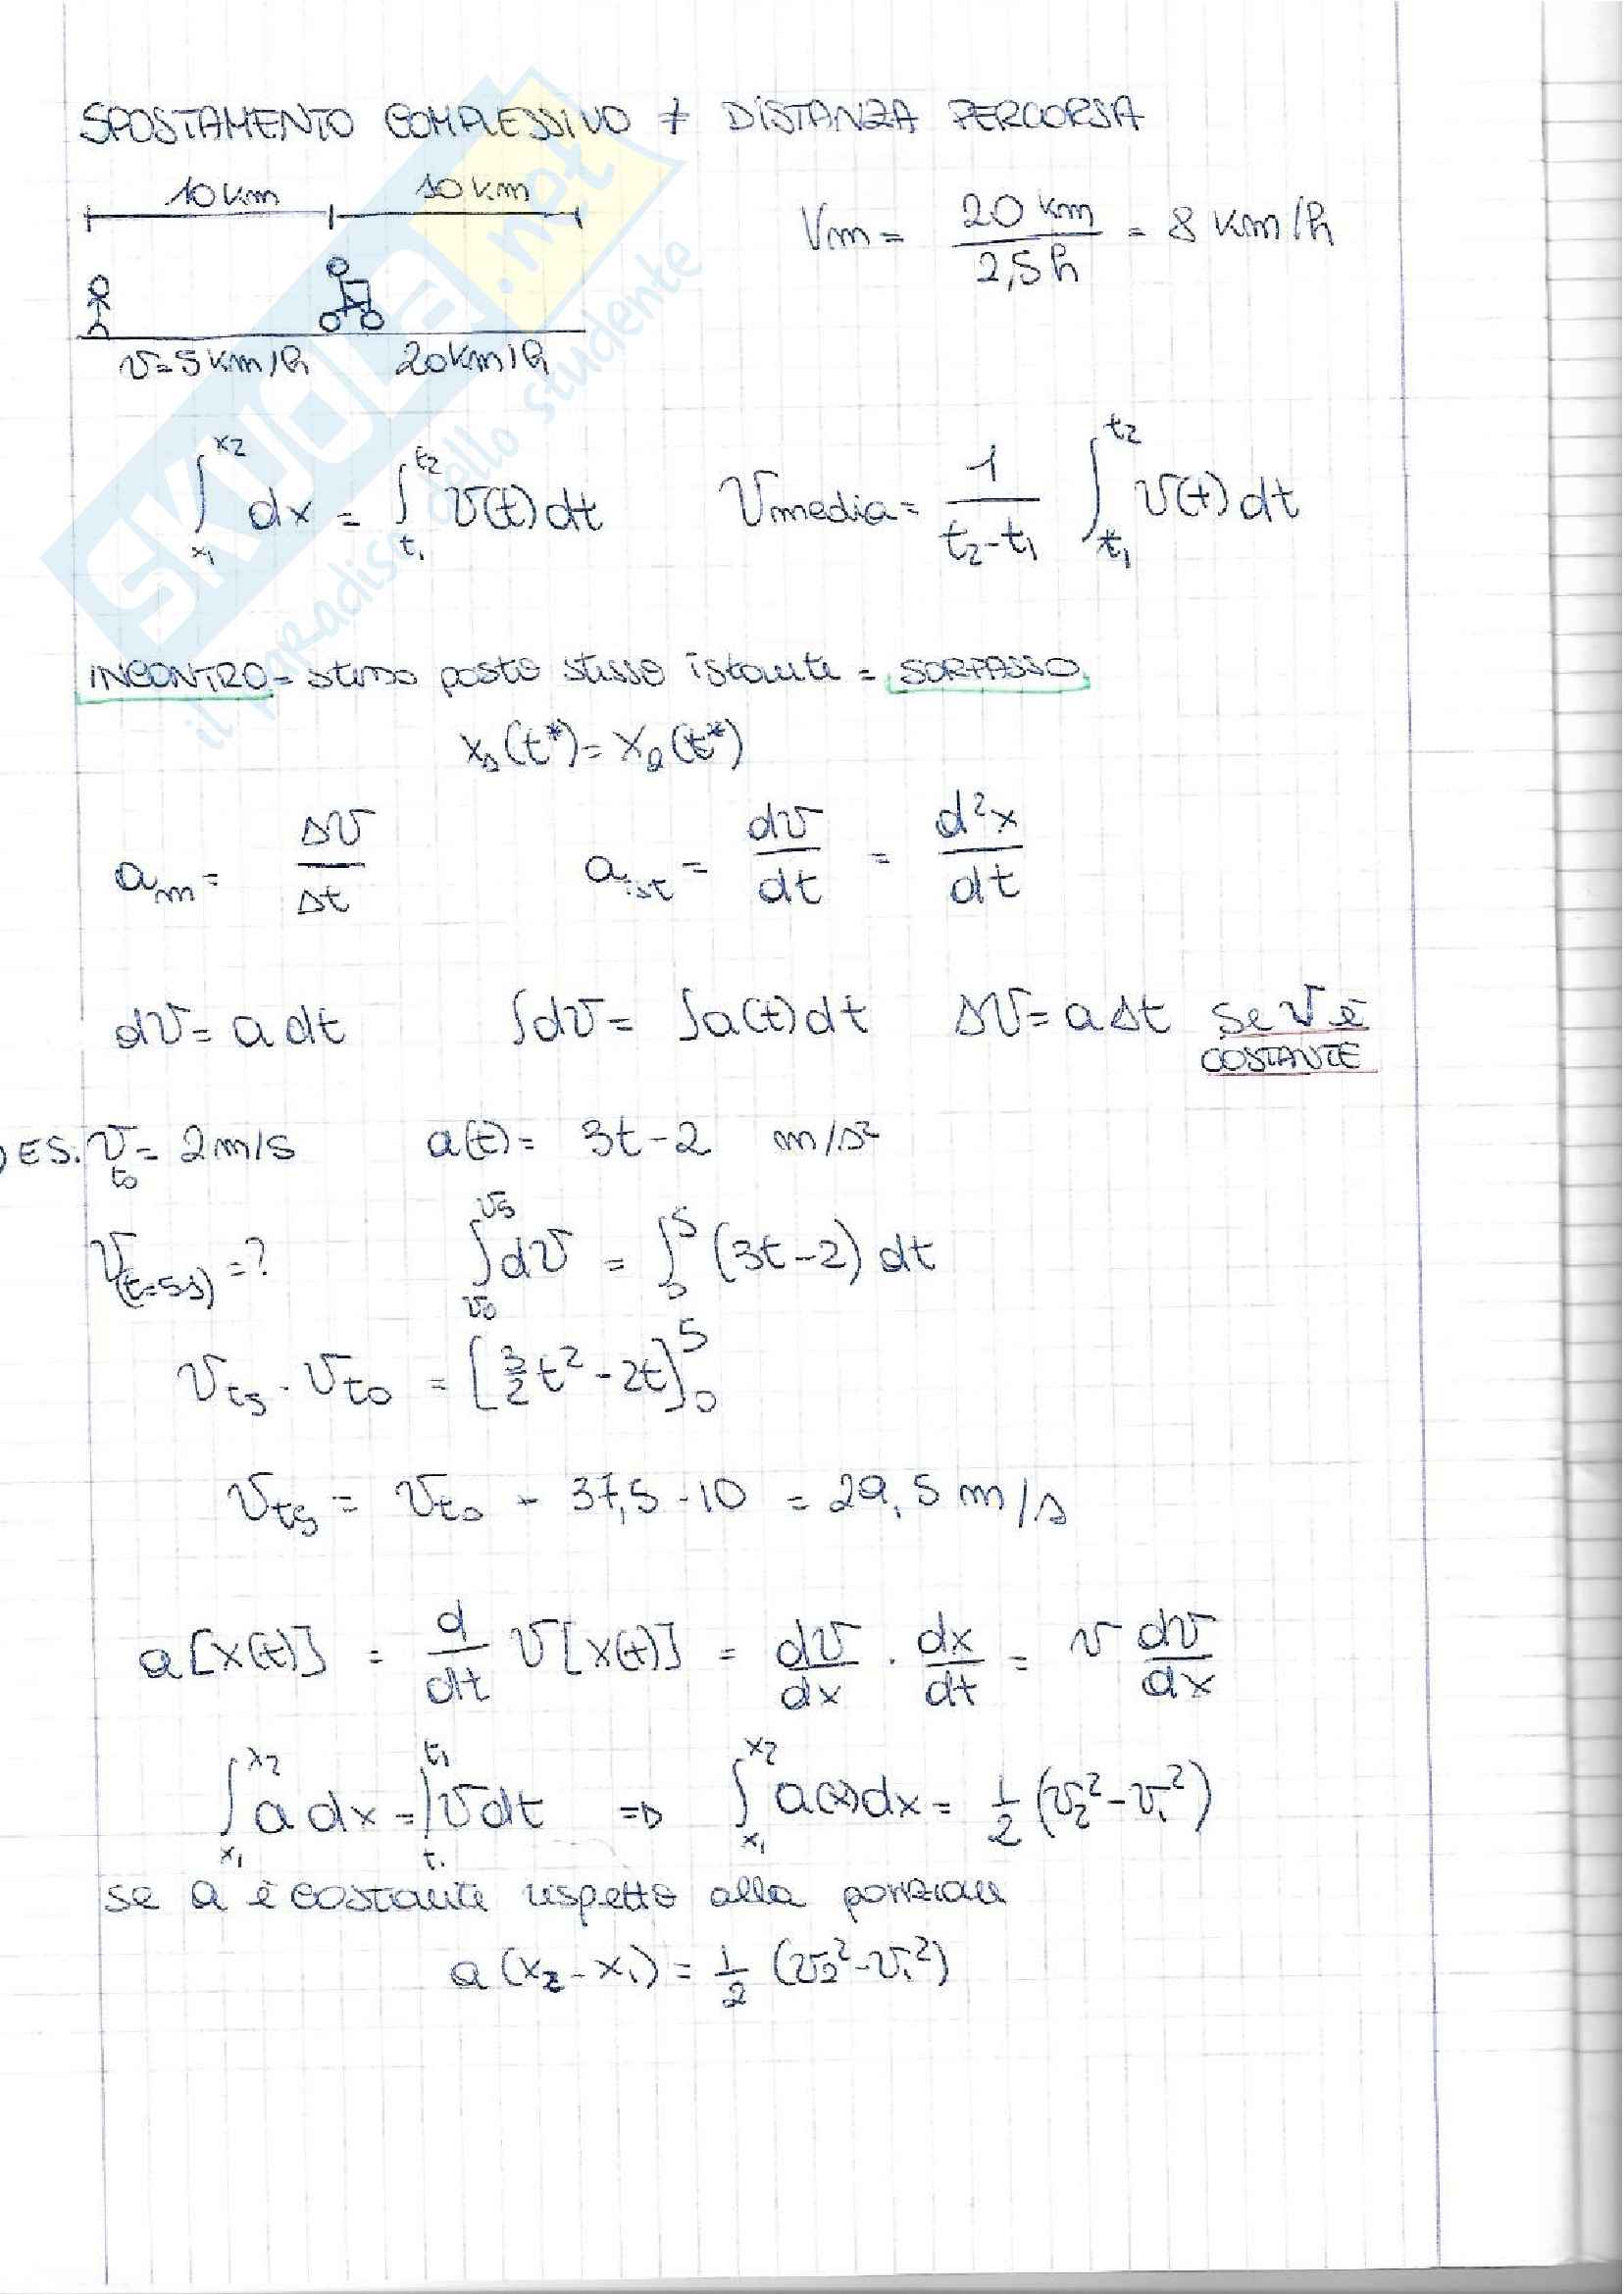 SPOSTAMENTO COMPLESSIVO ≠ DISTANZA PERCORSA
10 km 10 km
Vm = 20 km / 2,5 h = 8 km/h
v = 5 km/h 20 km/h
∫_{x1}^{x2} dx = ∫_{t1}^{t2} v(t) dt Vmedia = 1/(t2-t1) ∫_{t1}^{t2} v(t) dt
INCONTRO = stesso posto stesso istante = SORPASSO
(t*) = (t*)
a_m = Δv/Δt a_ist = dv/dt = d²x/dt
dv = a dt ∫dv = ∫a(t) dt Δv = aΔt se v è
COSTANTE
ES: v_{t0} = 2 m/s a(t) = 3t-2 m/s²
v_{(t=5s)} = ? ∫_{v0}^{v5} dv = ∫_0^5 (3t-2) dt
v_{t5} - v_{t0} = [3/2 t² - 2t]_0^5
v_{t5} = v_{t0} - 37,5 - 10 = 29,5 m/s
a[x(t)] = d/dt v[x(t)] = dv/dx · dx/dt = v dv/dx
∫_{x1}^{x2} a dx = ∫ v dt => ∫_{x1}^{x2} a(x) dx = 1/2 (v2² - v1²)
se a è costante rispetto alla posizione
a(x2 - x1) = 1/2 (v2² - v1²)
SKUOLA.net
il paradiso dello studente